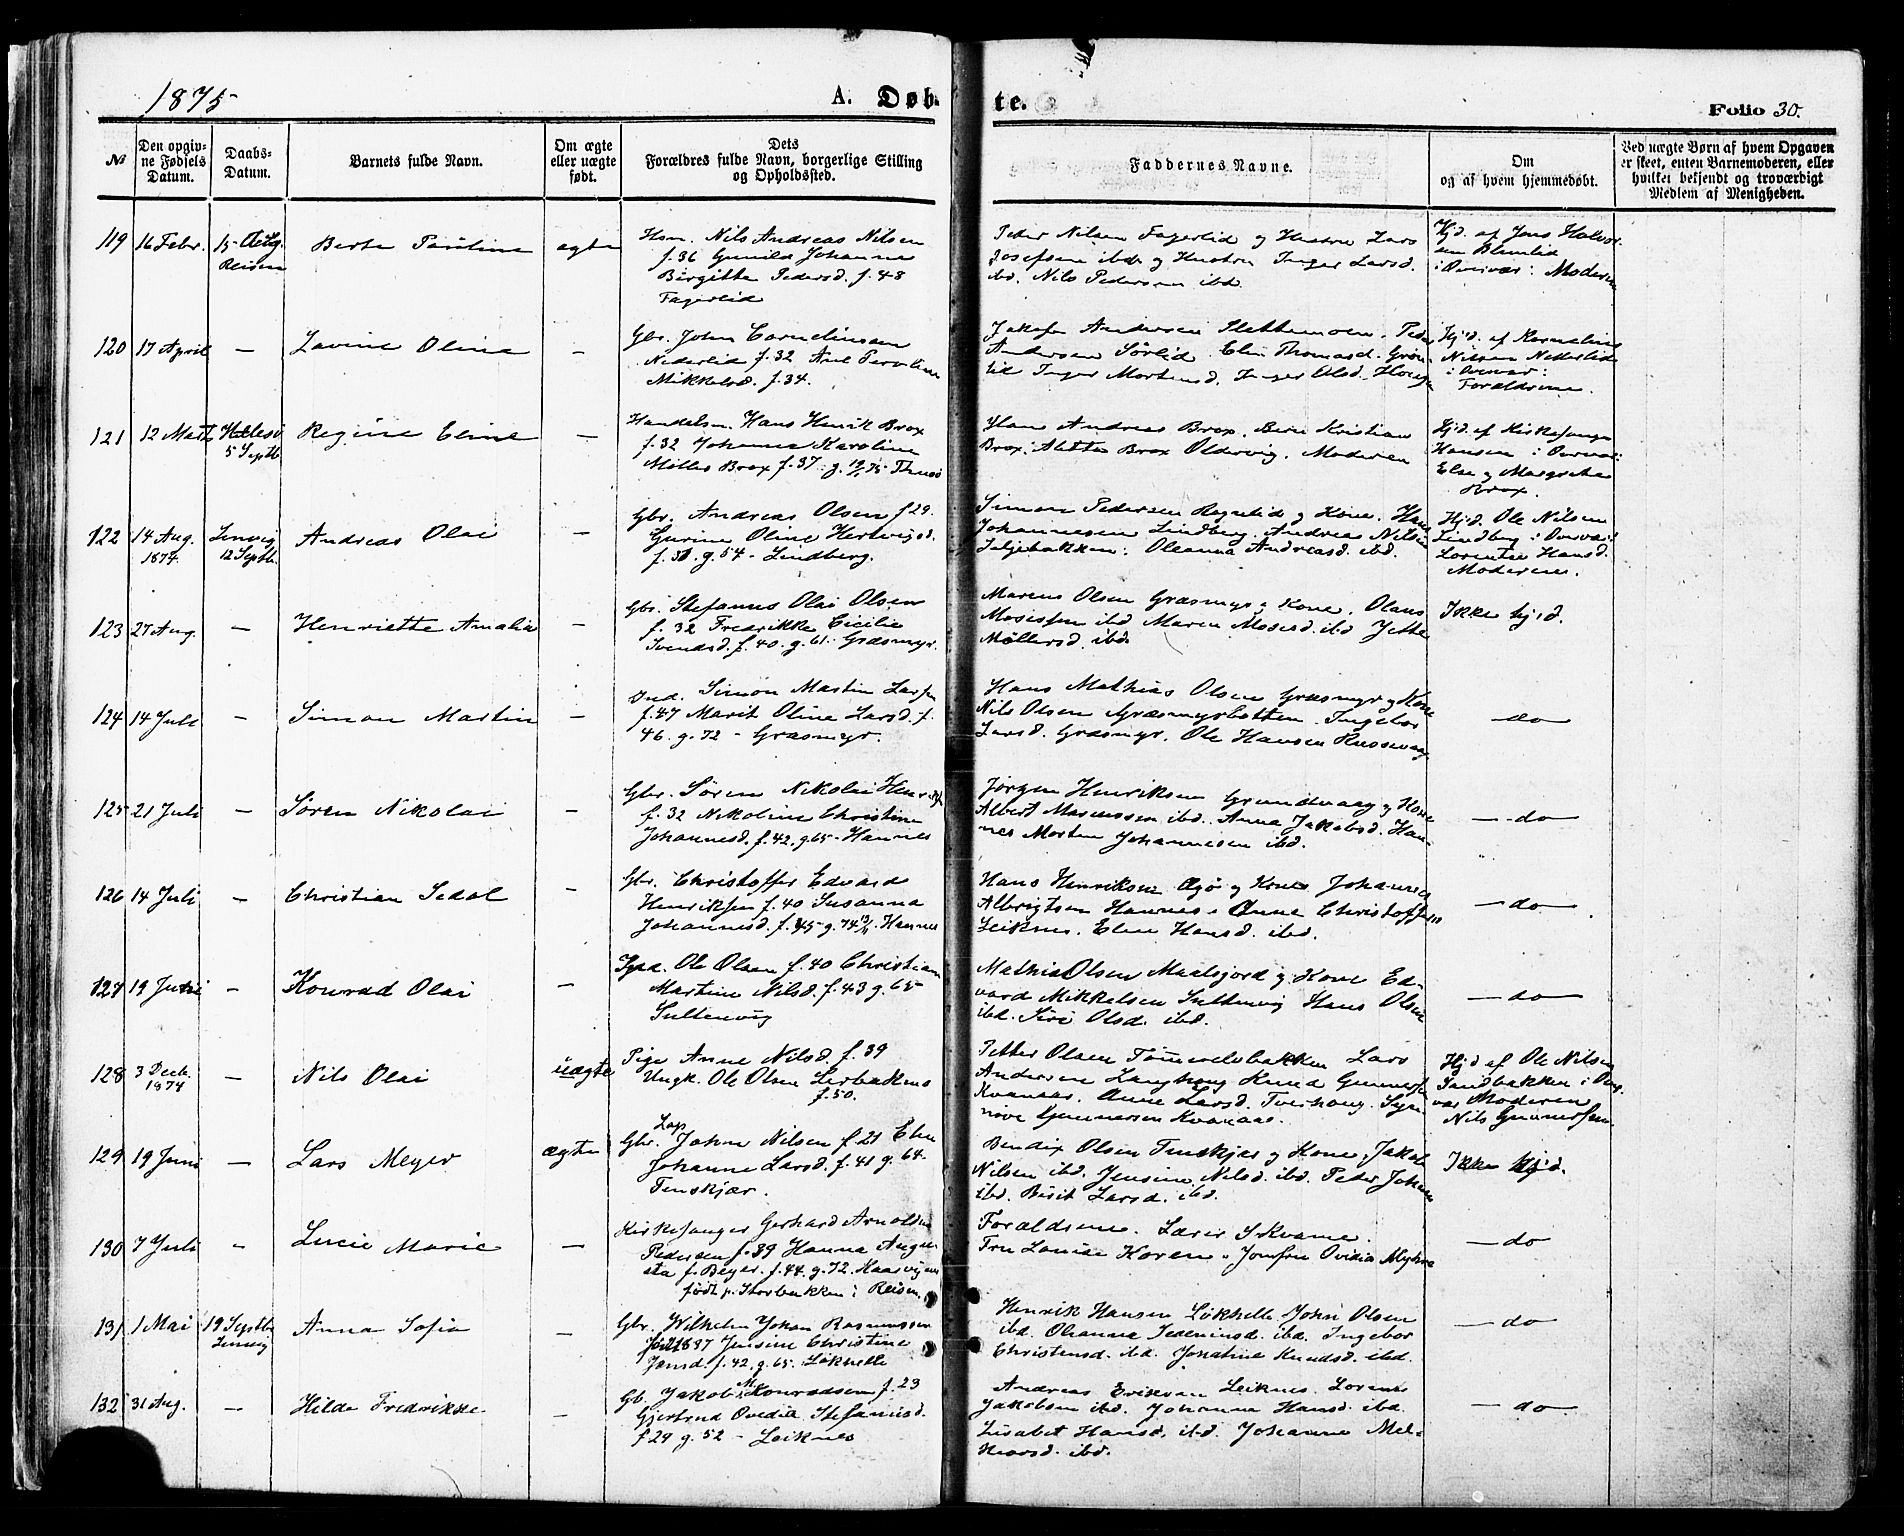 1875
A. Døbte.
Folio 30.
№
Den opgivne Fødsels Datum.
Daabs-Datum.
Barnets fulde Navn.
Om ægte eller uægte født.
Dets Forældres fulde Navn, borgerlige Stilling og Opholdssted.
Faddernes Navne.
Om og af hvem hjemmedøbt.
Ved uægte Børn af hvem Opgaven er skeet, enten Barnemoderen, eller hvilket bekjendt og troværdigt Medlem af Menigheden.
119 16 Febr. 15 Aug. Reisen Berte Pauline ægte
Hsm. Nils Andreas Nilsen
f.36 Gunild Johanna
Birgitte Pedersd. f.48
Fagerlid
Peder Nilsen Fagerlid og Hustru Lars
Josefsen ibd. og Hustru Inger Larsd.
ibd. Nils Pedersen ibd.
Hjd. af Jens Halvorsen
i Overvær: Moderen
120 17 April — Lavine Oline —
Gbr. John Corneliussen
Nederlid f.32 Ane Pernline
Mikkelsd. f.34.
Jakob Andersen Slettemoen. Peder
Andersen Sørlid. Elen Thomasd. Grønlid
Inger Mortensd. Inger Olsd.
Hjd. af Kornelius
Nilsen Nederlid
i Overvær:
Forældrene.
121 12 Marts Hillesø 5 Septb. Regine Eline —
Handelsm. Hans Henrik Brox
f.32 Johanna Karoline
Møller Brox f.37. g.
Hans Andreas Brox. Bern Kristian
Brox. Alette Brox Oldervig. Moderen
Hjd. af Kirkesanger
Hansen i Overvær:
Else og Margrethe
Brox.
122 14 Aug. 1874. Lenvig 12 Septb. Andreas Olai —
Gbr. Andreas Olsen f.29.
Gurine Oline Hertvigsd.
f.30 g.54 - Lindberg.
Simon Pedersen Røgnlid og Kone. Hans
Johannesen Lindberg. Andreas Nilsen
Siljebakken: Oleanna Andreasd. ibd.
Hjd. Ole Nilsen
Lindberg i Overvær:
Lorentse Hansd.
Moderen.
123 27 Aug. — Henriette Amalia —
Gbr. Stefanus Olai Olsen
f.32 Fredrikke Cecilie
Svendsd. f.40. g.61. Græsmyr.
Marens Olsen Græsmyr og Kone. Olaus
Mosissen ibd Maren Mosesd. ibd Jette
Møllersd. ibd.
Ikke hjd.
124 14 Juli — Simon Martin —
Ind. Simon Martin Larsen
f.47 Marit Oline Larsd. f.
46. g.72 - Græsmyr.
Hans Mathias Olsen Græsmyr og Kone
Nils Olsen Græsmyrbotten. Ingebor
Larsd. Græsmyr. Ole Hansen Russevaag
— do —
125 21 Juli — Søren Nikolai —
Gbr. Søren Nikolai Henriks.
f.32 Nikoline Christine
Johannesd. f.42. g.65 - Hannes
Jørgen Henriksen Grundvaag og Kone
Albert Rasmussen ibd. Anna Jakobsd. Hannes
Morten Johannesen ibd.
— do —
126 14 Juli — Christian Pedal —
Gbr. Christoffer Edvard
Henriksen f.40 Susanna
Johannesd. f.45 g.74 Hannes
Hans Henriksen Øgø og Kone Johannes
Albrigtsen Hannes. Anne Christoffers
Leiknes. Elen Hansd. ibd.
— do —
127 19 Juni — Konrad Olai —
Ole Olsen f.40 Christian
Martine Nilsd. f.43 g.65-
Sultenvig
Mathias Olsen Maalsjord og Kone Edvard
Mikkelsen Sultenvig Hans Olsen
ibd. Siri Olsd. ibd.
— do —
128 3 Decb. 1874 — Nils Olai uægte
Pige Anne Nilsd. f.39
Ungk. Ole Olsen Lerbakmo
f.50.
Petter Olsen Tømmelvbakken Lars
Andersen Langhaug Knud Gunnarsen
Kvanaas. Anne Larsd. Tverhaug. Synnøve
Gunnarsen Kvanaas.
Hjd af Ole Nilsen
Sandbakken i Overvær
Moderen
Nils Gunnersen
129 19 Juni — Lars Meyer ægte
Gbr. Lap John Nilsen f.21 Elen
Johanne Larsd. f.41 g.64.
Finskjær.
Bendix Olsen Finskjær og Kone Jakob
Nilsen ibd. Jensine Nilsd. ibd. Peder Johnsen
ibd. Berit Larsd. ibd.
Ikke hjd.
130 7 Juli — Lucie Marie —
Kirkesanger Gerhard Arnoldus
Pedersen f.39 Hanna Augusta
f. Beyer. f.44. g.72. Kaarvigen
født p. Storbakken i Reisen.
Forældrene. Lærer S. Kvame.
Fru Louise Koren. Jomfru Ovidia Myhre
— do
131 1 Mai 19 Septb. Lenvig Anna Sofia —
Gbr. Wilhelm Johan Rasmussen
født 1837 Jensine Christine
Jensd. f.42. g.65. Løkhelle
Henrik Hansen Løkhelle John Olsen
ibd. Ohanna Pederinsd. ibd. Ingebor
Christensd. ibd. Jonatine Knudsd. ibd.
— do —
132 31 Aug. — Hilda Fredrikke —
Gb. Jakob M. Konradsen f.23
Gjertrud Ovedia Stefanusd.
f.29 g.52 - Leiknes
Andreas Eriksen Leiknes. Lorens
Jakobsen ibd. Johanna Hansd. ibd.
Lisabet Hansd. ibd. Johanne Melkiorsd.
ibd.
— do —